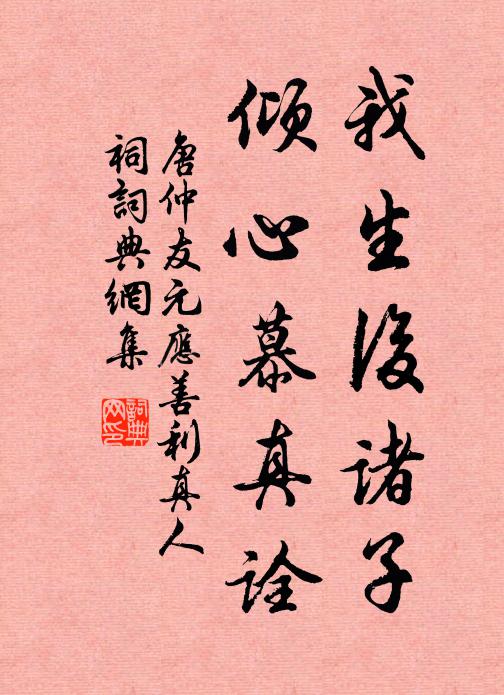 我生後諸子
傾心慕真詮
唐仲友元應善利真人
祠詞典網集
詞典
网印